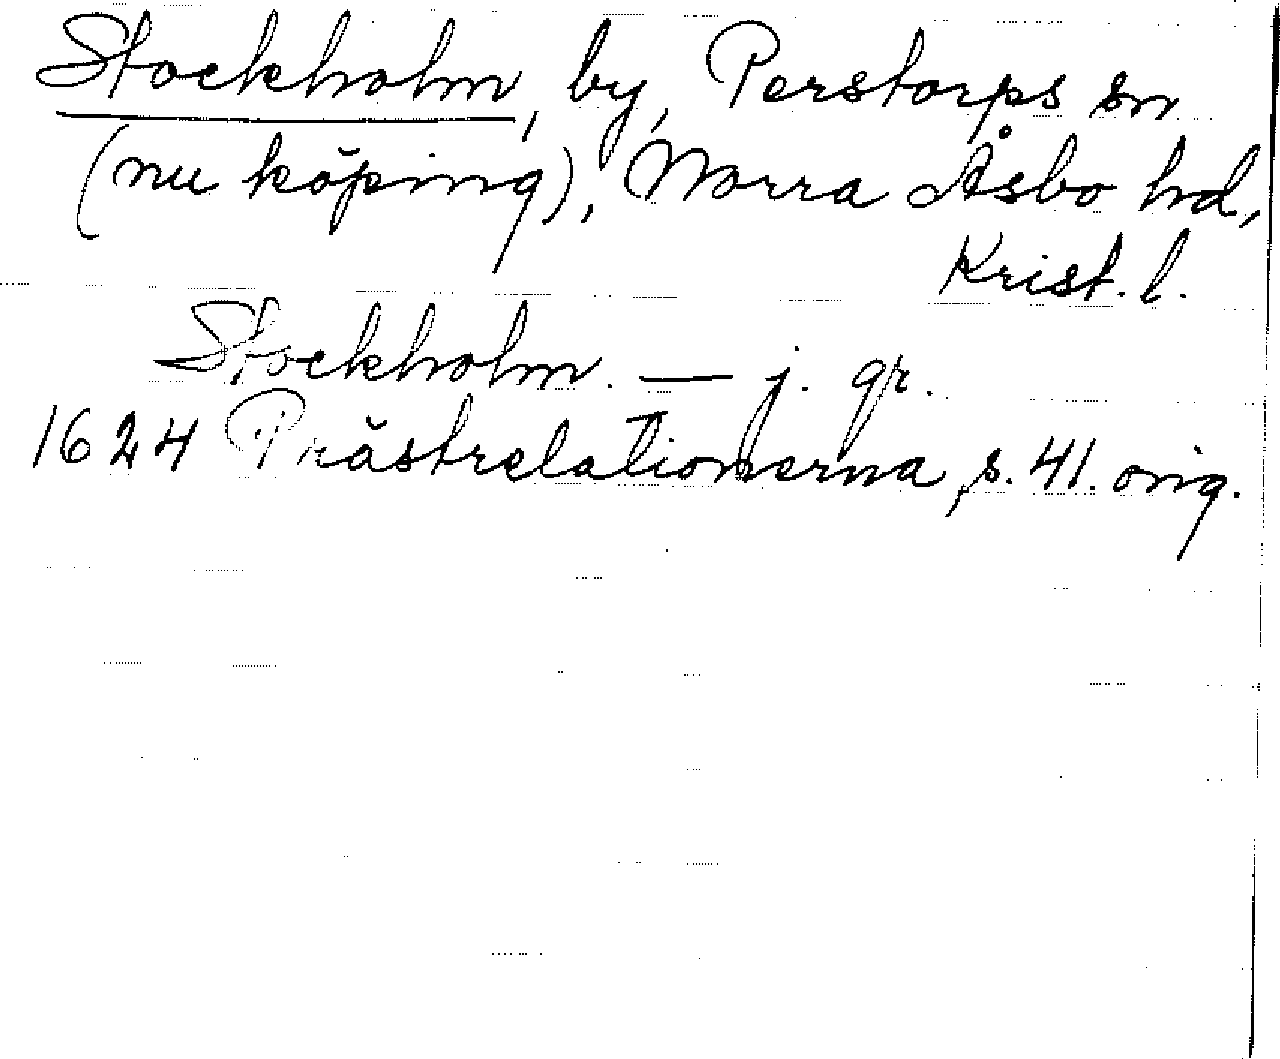 Stockholm, by, Perstorps sn
(nu köping), Norra Åsbo hd,
Krist. l.
Stockholm. — j. gr.
1624 Prästrelationerna, s. 41. orig.